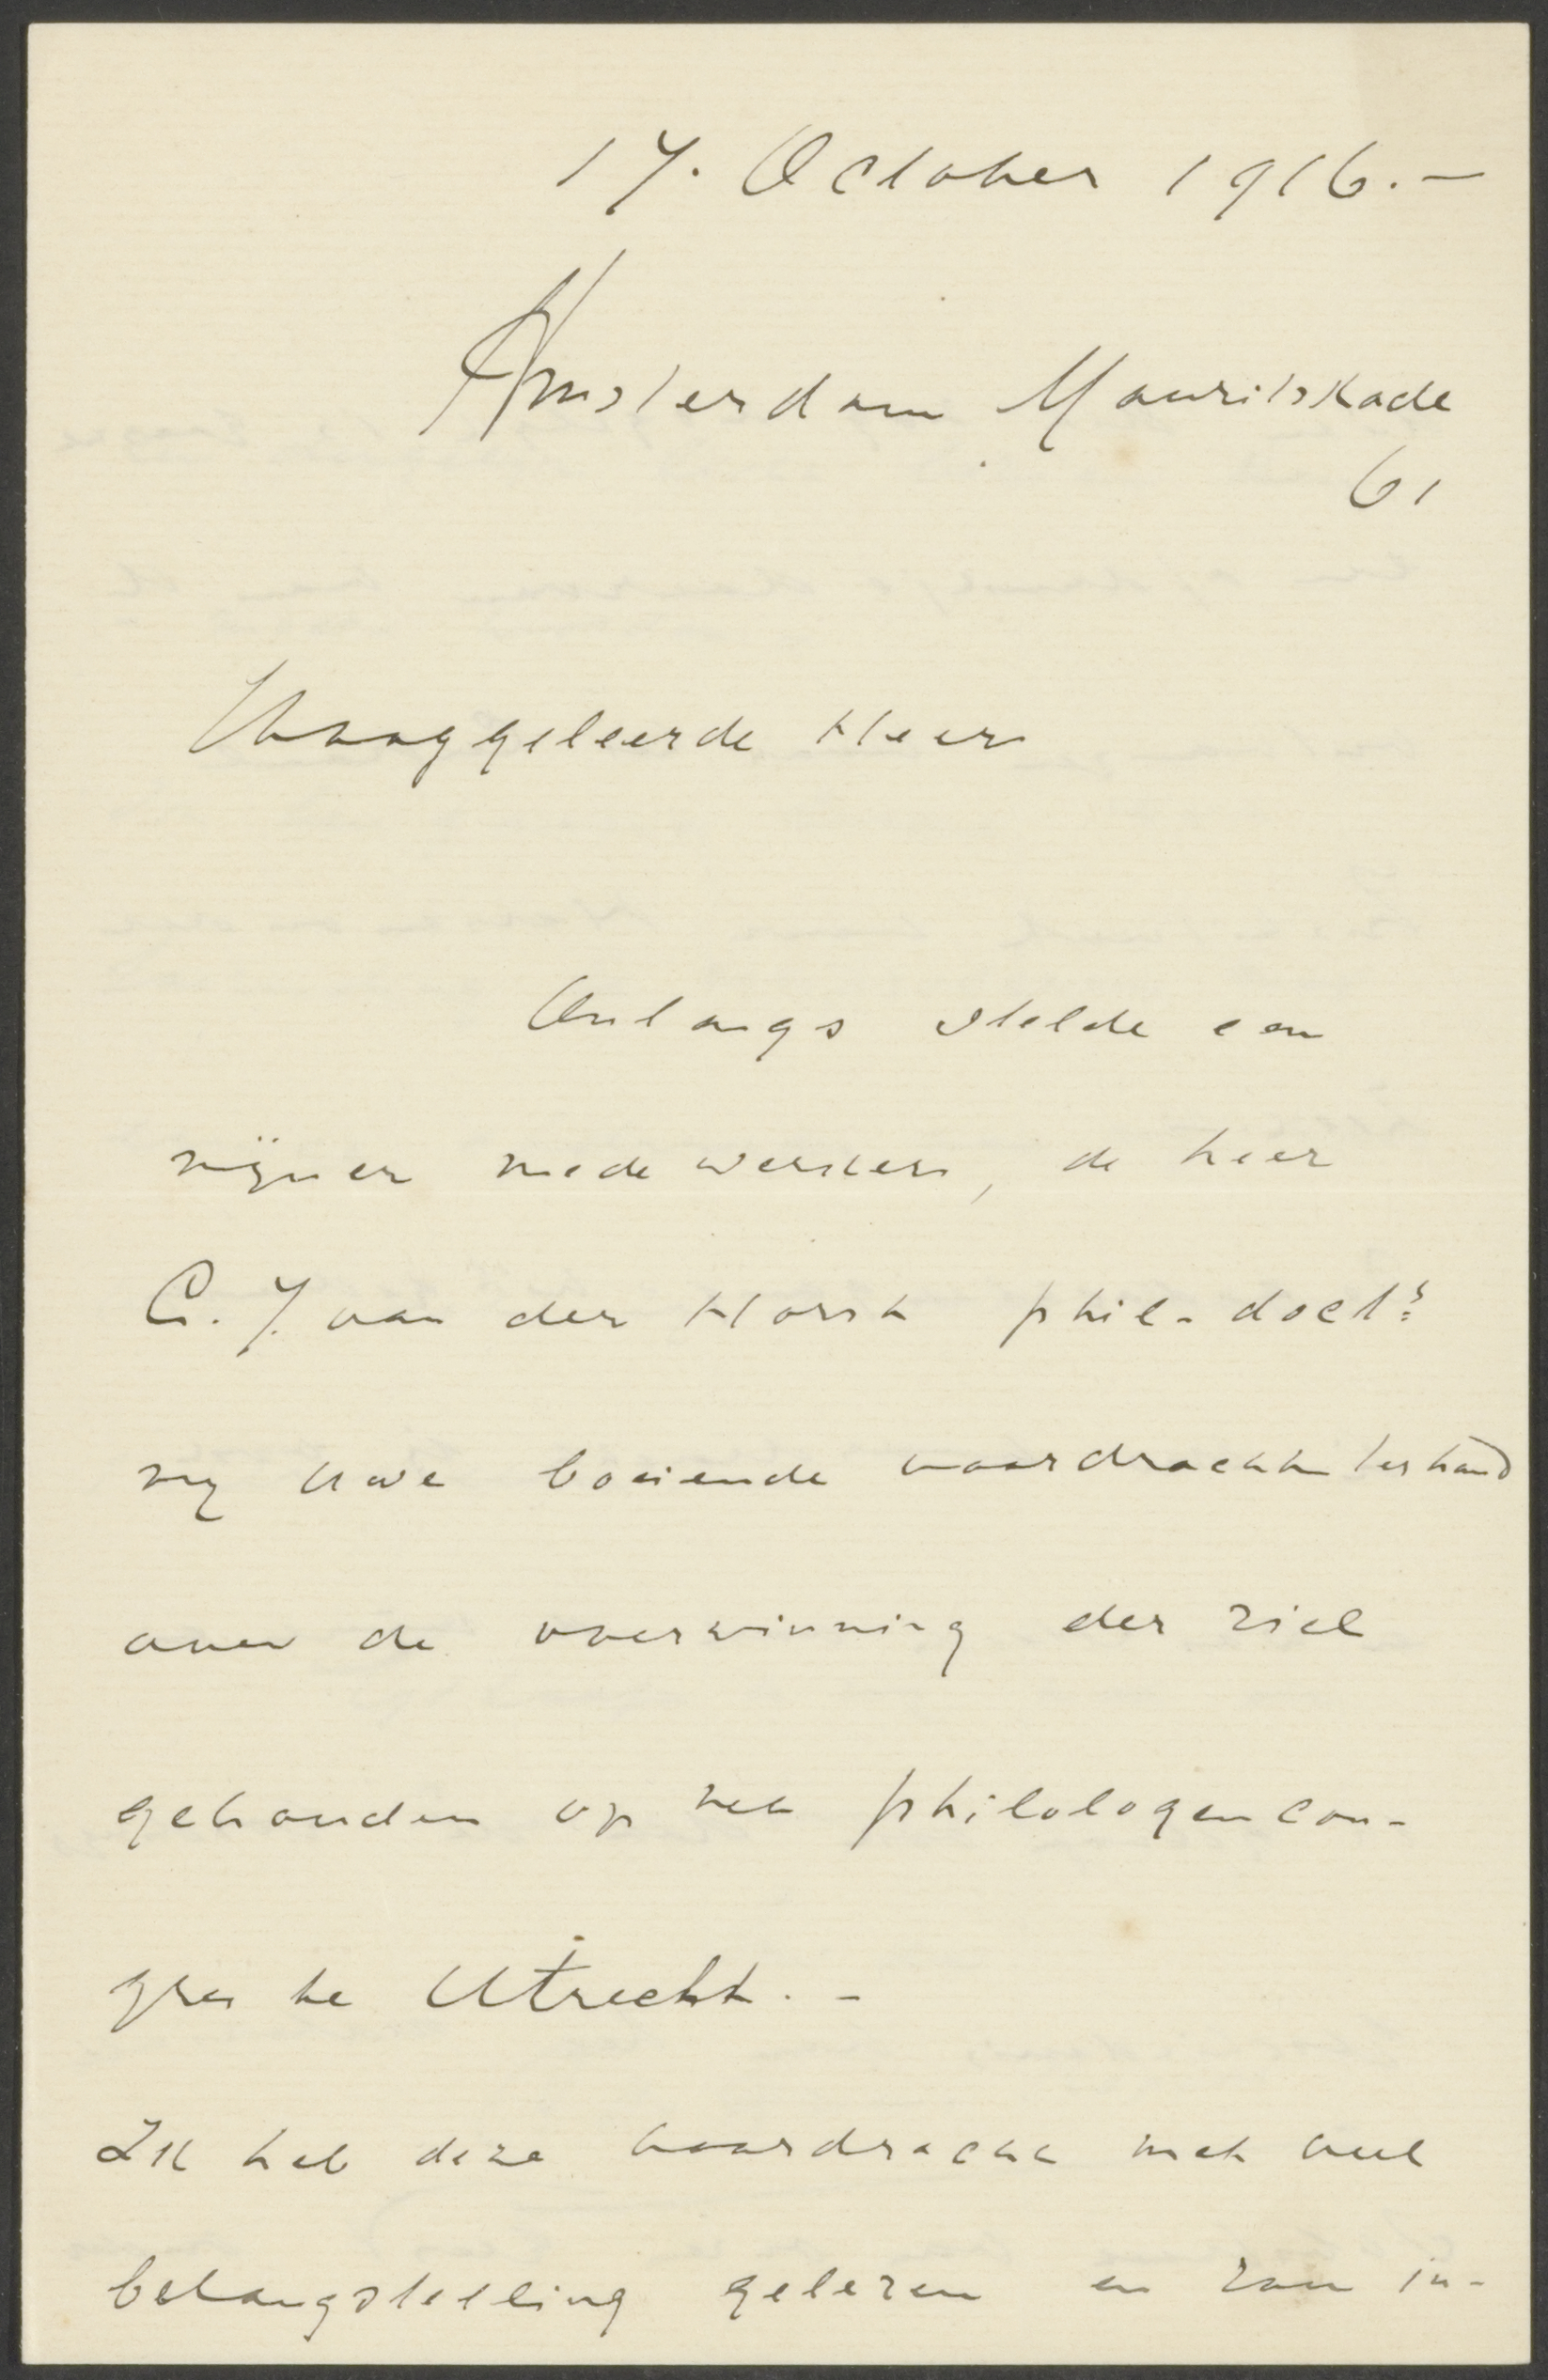 17. October 1916. —
Amsterdam Mauritskade
61
Hooggeleerde Heer
Onlangs stelde een
mijner medewerkers, de heer
C. J. van der Horst phil. docts
my uwe boeiende voordracht ter hand
over de overwinning der ziel
gehouden op het philologencon-
gres te Utrecht. -
Ik heb deze voordracht met veel
belangstelling gelezen en zou in-